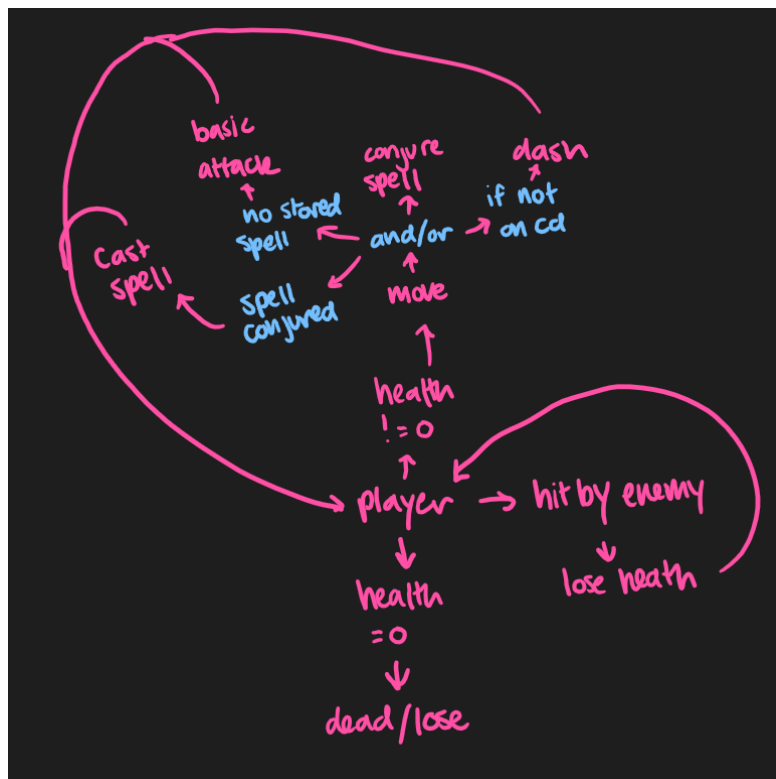 basic
attack
conjure
spell
dash
no stored
spell
and/or
if not
on cd
Cast
spell
spell
conjured
move
health
!=0
player
hit by enemy
lose heath
health
=0
dead/lose